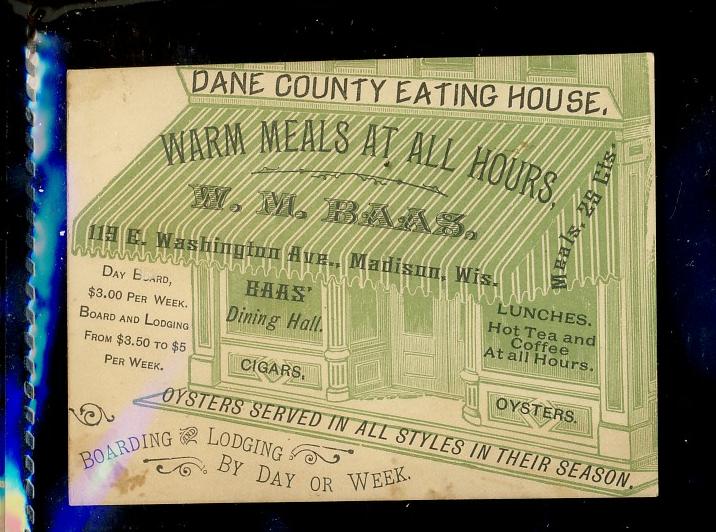 DANE COUNTY EATING HOUSE.
WARM MEALS AT ALL HOURS,
W. M. BAAS.
119 E. Washington Ave., Madison, Wis.
Meals, 25 Cts.
DAY BOARD,
$3.00 PER WEEK.
BOARD AND LODGING
FROM $3.50 TO $5
PER WEEK.
BAAS'
Dining Hall.
CIGARS.
LUNCHES.
Hot Tea and
Coffee
At all Hours.
OYSTERS.
OYSTERS SERVED IN ALL STYLES IN THEIR SEASON.
BOARDING AND LODGING
BY DAY OR WEEK.